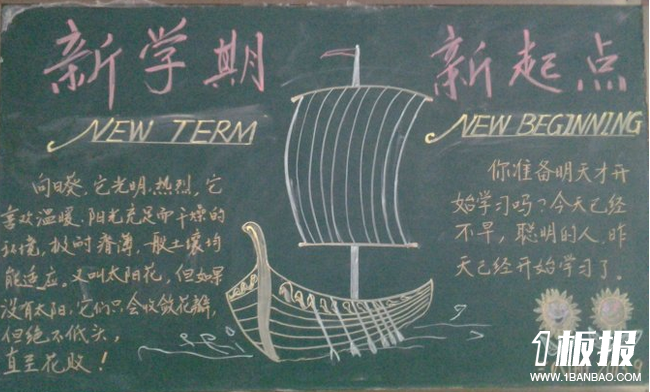 新学期
新起点
NEW TERM
NEW BEGINNING
向日葵,它光明,热烈,它
喜欢温暖、阳光充足而干燥的
环境,极耐瘠薄,一般土壤均
能适应。又叫太阳花,但如果
没有太阳,它们只会收敛花瓣,
但绝不低头,
直至花败!
你准备明天才开
始学习吗?今天已经
不早,聪明的人,昨
天已经开始学习了。
1板报
WWW.1BANBAO.COM